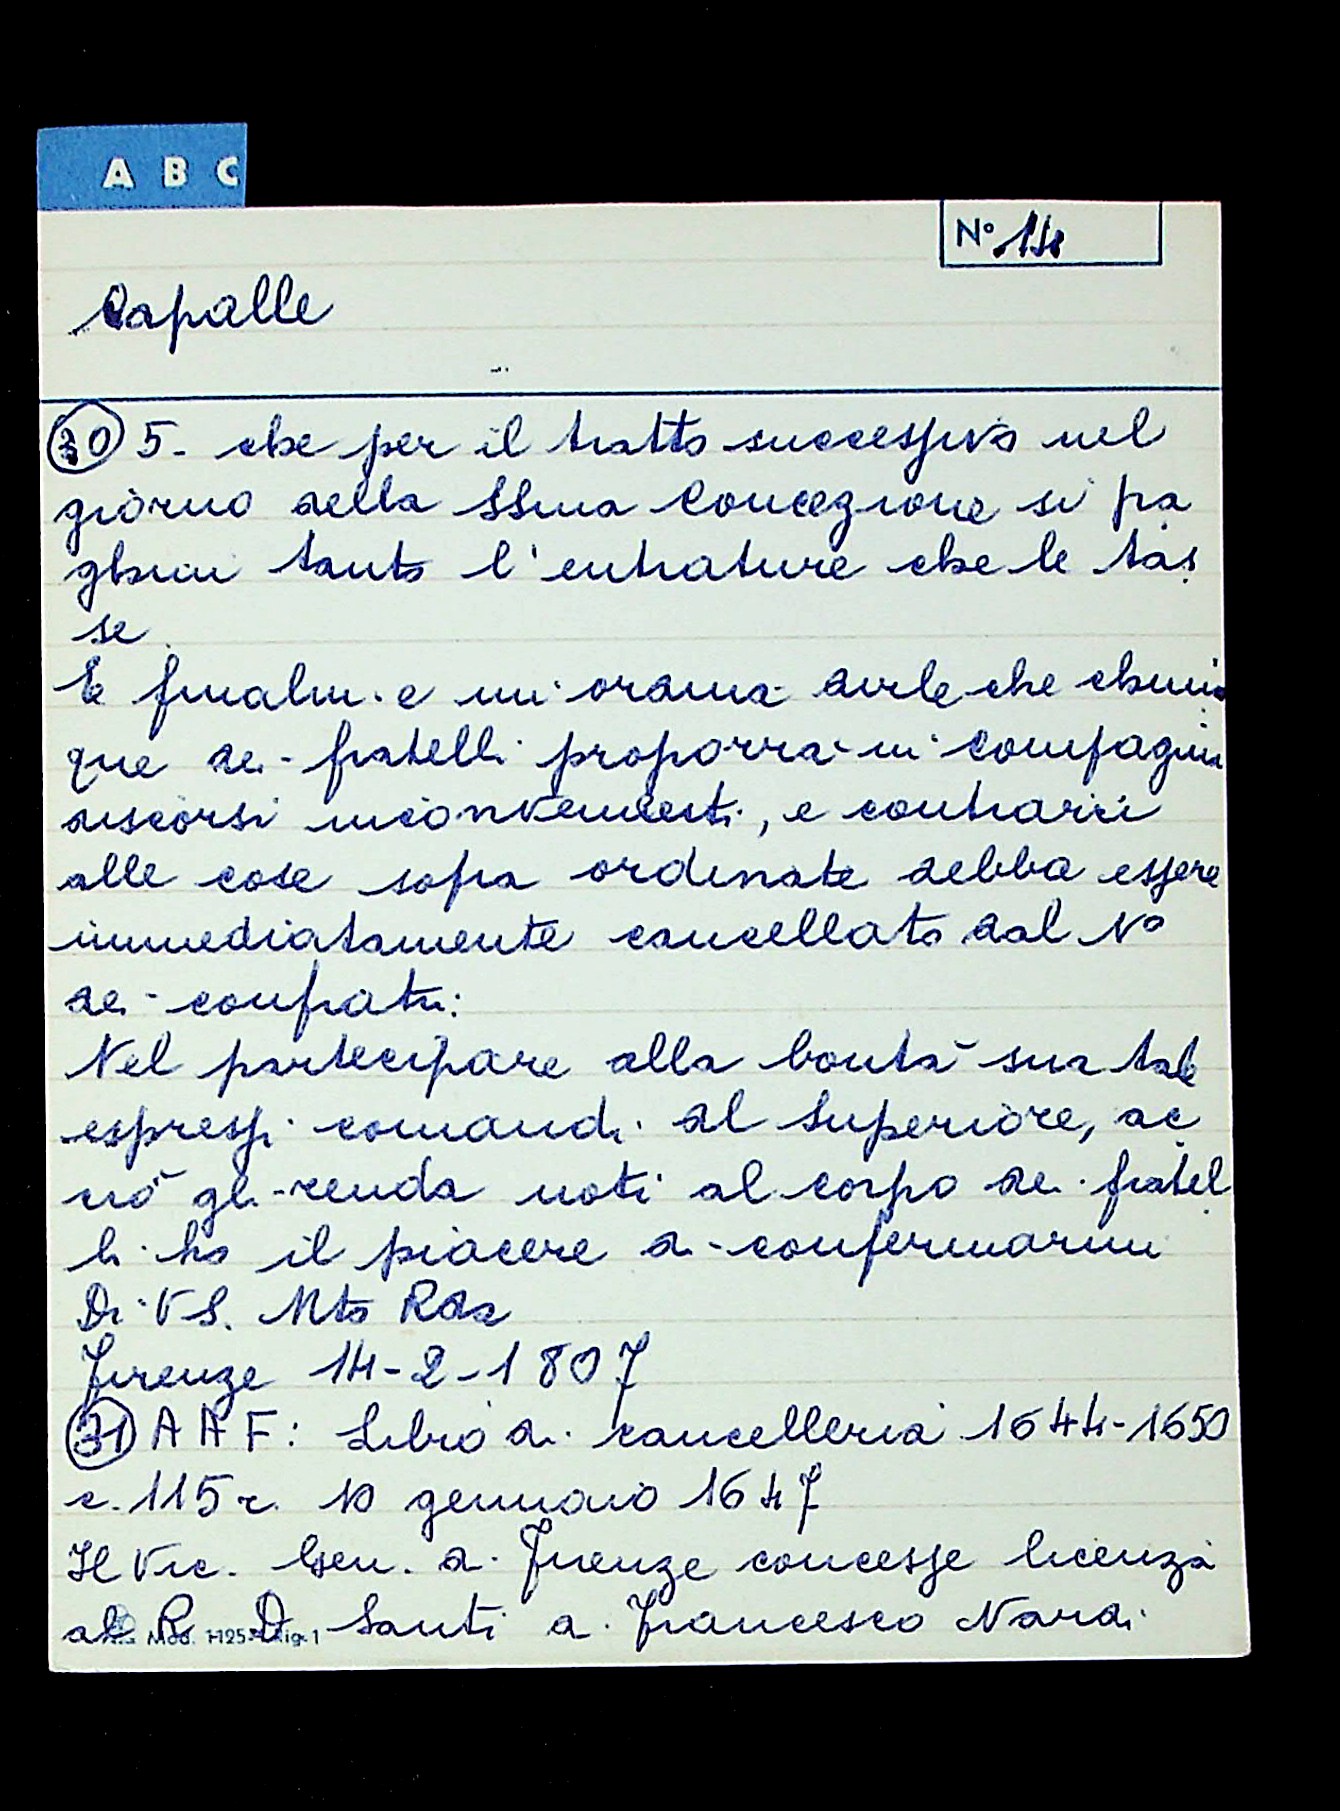 A B C
N° 14
Capalle
30 5- che per il tratto successivo nel
giorno della SSma Concezione si pa
ghini tanto l'entrature che le tas
se.
E finalm.e mi ordina dirle che chiun
que dei fratelli proporrà in compagnia
discorsi inconvenienti, e contrarii
alle cose sopra ordinate debba essere
immediatamente cancellato dal N°
dei confratri:
Nel partecipare alla bontà sua tali
espressi comandi al Superiore, ac
ciò gli renda noti al corpo dei fratel
li ho il piacere di confermarmi
Di V S. Mto Rda
Firenze 14-2-1807
31 A A F: Libro di cancelleria 1644-1650
c. 115 r. 10 gennaio 1647
Il Vic. Gen. di Firenze concesse licenza
al R. D. Santi di Francesco Nardi
Mod. 1-125